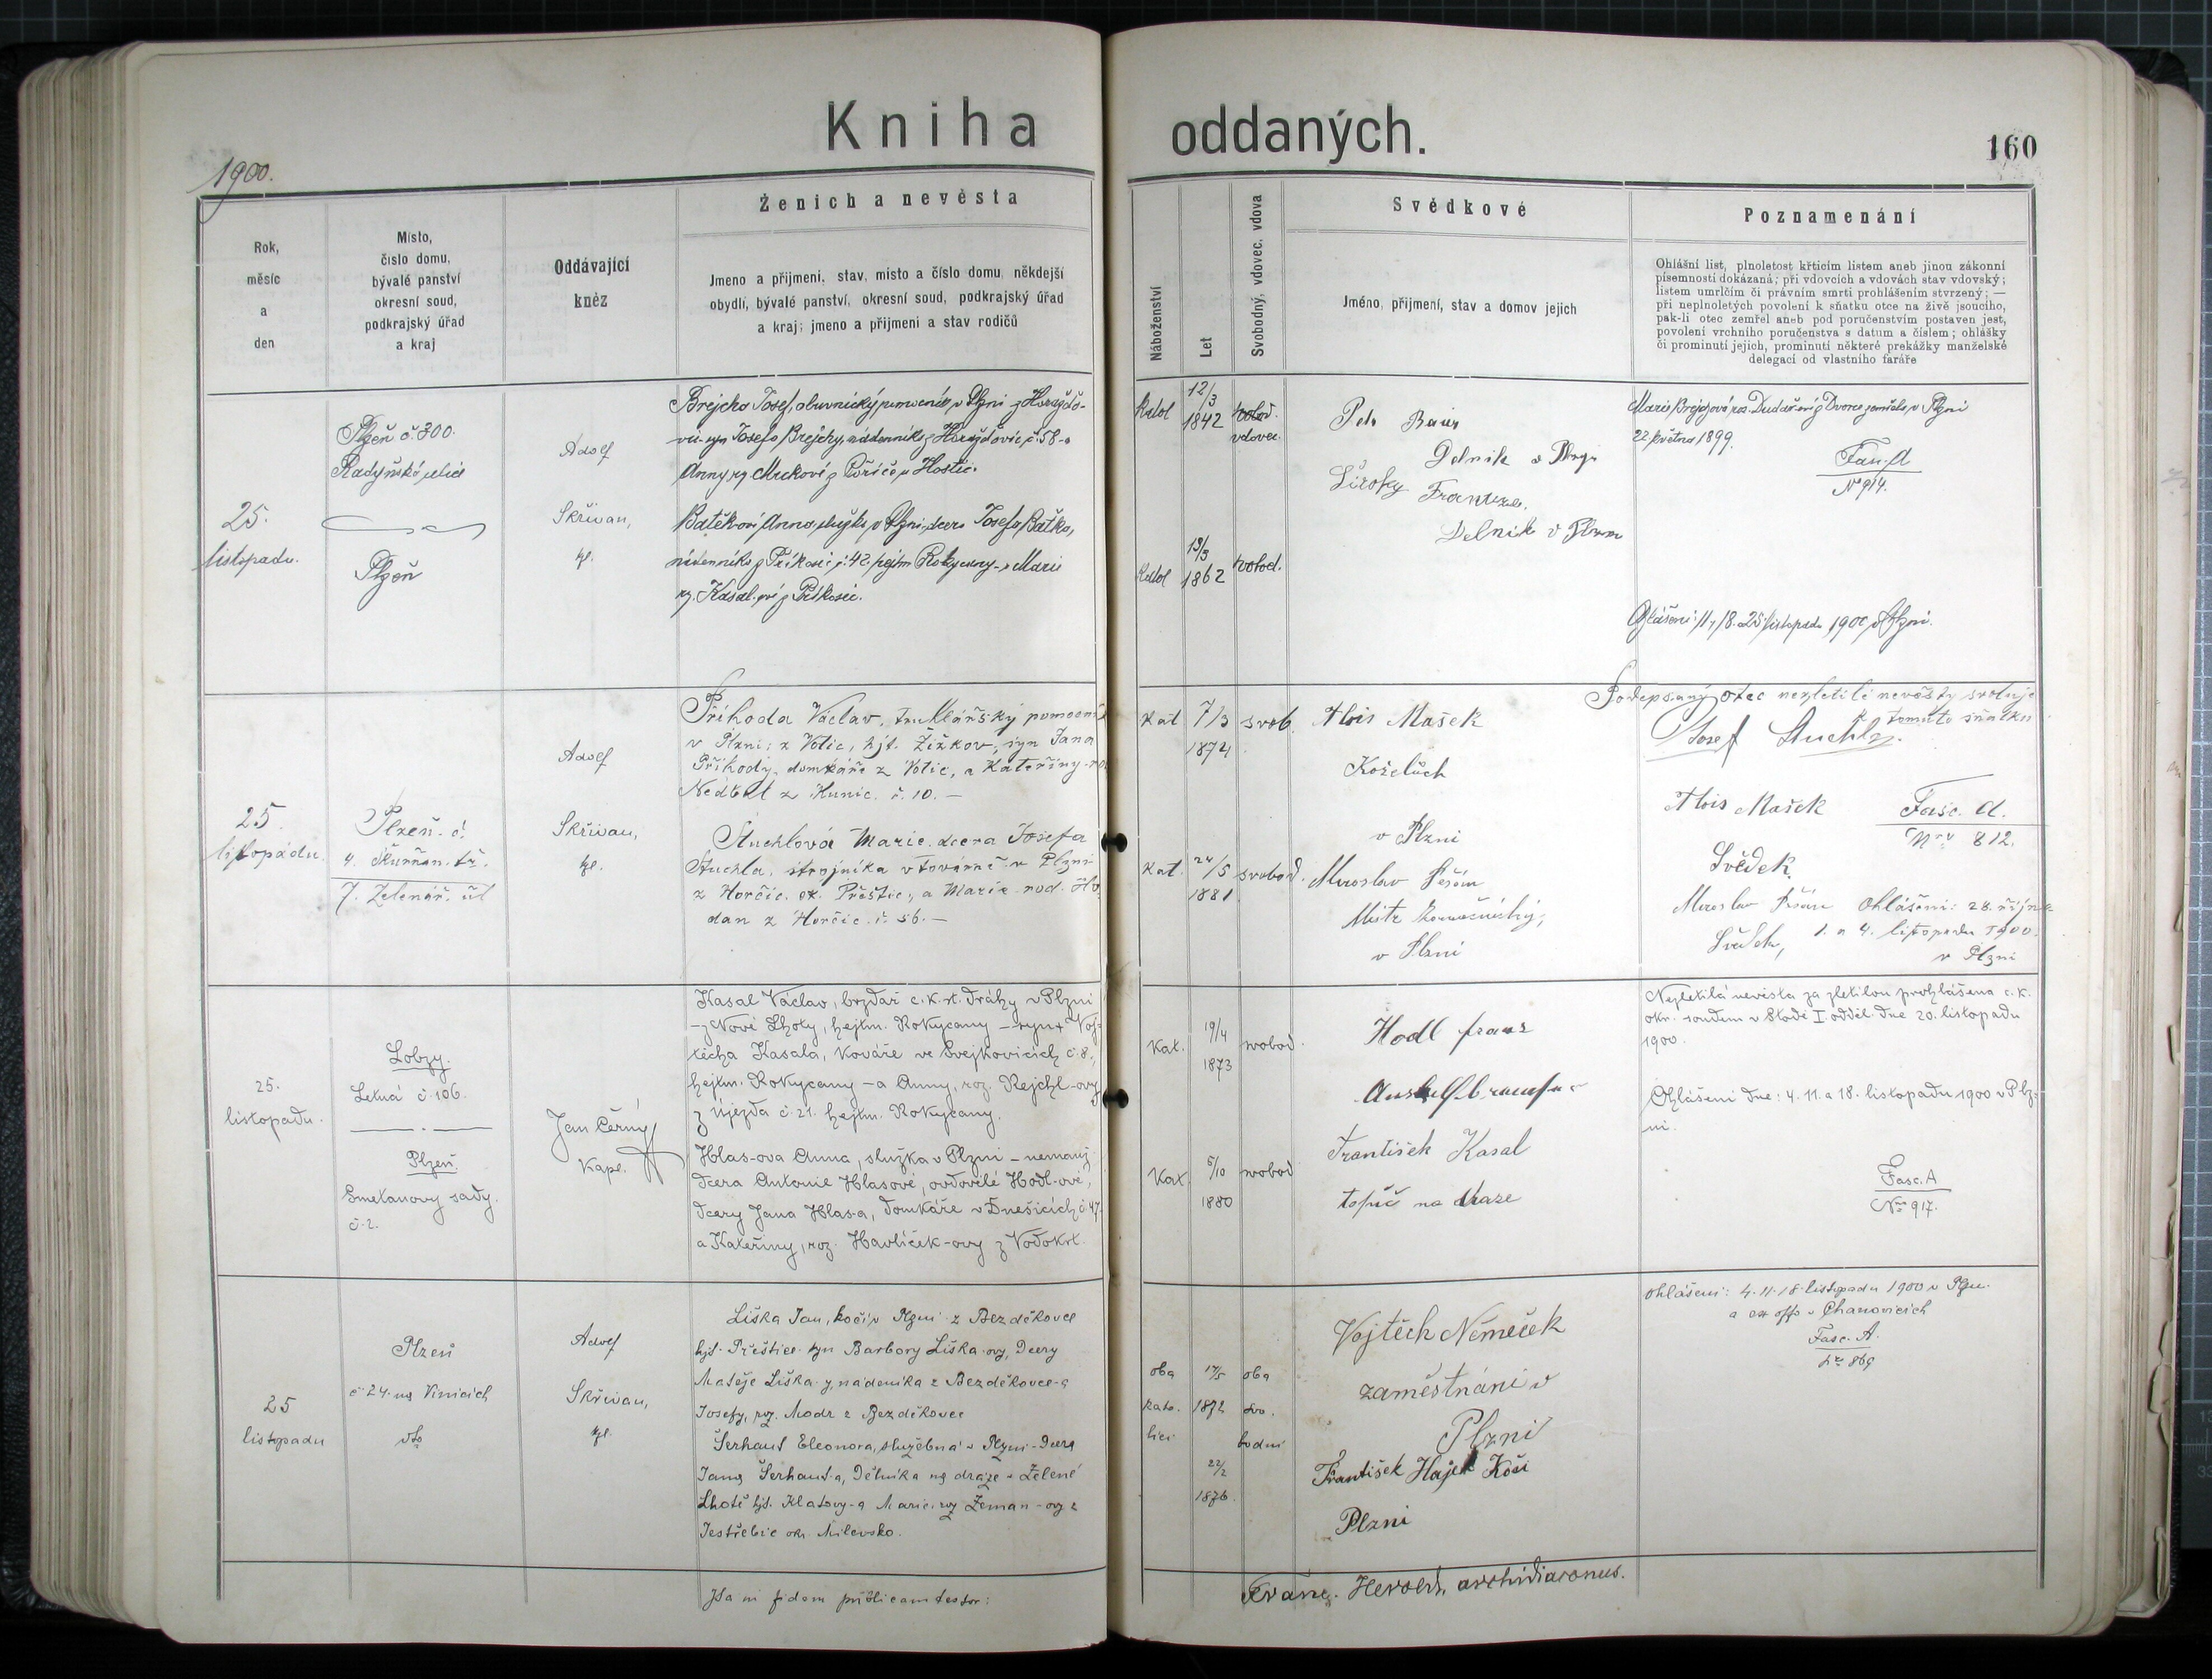 Kniha oddaných.
160
1900.
Rok,
měsíc
a
den
Místo,
číslo domu,
bývalé panství
okresní soud,
podkrajský úřad
a kraj
Oddávající
kněz
Ženich a nevěsta
Jmeno a přijmeni, stav, místo a číslo domu, někdejší
obydlí, bývalé panství, okresní soud, podkrajský úřad
a kraj; jmeno a přijmeni a stav rodičů
Náboženství
Let
Svobodný, vdovec, vdova
Svědkové
Jméno, přijmení, stav a domov jejich
Poznamenání
Ohlášní list, plnoletost křticím listem aneb jinou zákonní
písemností dokázaná; při vdovcích a vdovách stav vdovský;
listem umrlčím či právním smrti prohlášením stvrzený; —
při neplnoletých povolení k sňatku otce na živě jsoucího,
pak-li otec zemřel aneb pod poručenstvím postaven jest,
povolení vrchního poručenstva s datum a číslem; ohlášky
či prominutí jejich, prominutí některé prekážky manželské
delegací od vlastního faráře
25.
listopadu.
Plzeň č. 300.
Radyňská ulice
Plzeň
Adolf
Skřivan,
kpl.
Brejcha Josef, obuvnický pomocník v Plzni z Horažďo-
vic syn Josefa Brejchy, nádenníka z Horažďovic č. 58 a
Anny
Batěková Anna, služka v Plzni, dcera Josefa Baťka,
nádenníka z Příkosic č. 42. hejtm. Rokycany - a Marie
roz. Kasal-ové z Příkosic.
Katol
12/3
1842
svobod.
vdovec
Katol
19/3
1862
svobod.
Petr Baur
Delnik v Plzni
Široky Frantisek
Delnik v Plzni
Marie Brejchová roz. Dudařová z Dvorce zemřela v Plzni
22. května 1899.
Fasc. A
Nº 914.
Ohlášeni: 11, 18. a 25 listopadu 1900 v Plzni.
25.
listopadu.
Plzeň - č.
4. Škurňan. tř.
7. Zelenář. úl
Adolf
Skřivan,
kpl.
Příhoda Václav, truhlářský pomocník
v Plzni; z Votic, hjt. Žižkov, syn Jana
Příhody, domkáře z Votic, a Kateřiny
Nedbal z Hunic. č. 10. —
Stuchlová Marie. dcera Josefa
Stuchla, strojníka v továrně v Plzni
z Horčic. ok. Přeštic, a Marie rod. Ho
dan z Horčic. č. 56. —
Kat
7/3
1874
svob.
Kat.
24/5
1881
svobod.
Alois Mašek
Koželuh
v Plzni
Miroslav Pešán
Mistr
v Plzni
Podepsaný otec nezletilé nevěsty svoluje
k tomuto sňatku
Josef Stuchla.
Alois Mašek
Svědek
Miroslav Pešán
Svědek,
Fasc. A.
Nro 812.
Ohlášeni: 28. října
1. a 4. listopadu 1900.
v Plzni
25.
listopadu.
Lobzy.
Letná č. 106.
Plzeň.
Smetanovy sady.
č. 2.
Jan Černý
Kapl.
Kasal Václav, brzdař c. k. st. dráhy v Plzni
- z Nové Lhoty, hejtm. Rokycany - syn + Voj-
těcha Kasala, kováře ve Svejkovicích č. 8.,
hejtm. Rokycany - a Anny, roz. Rejchl-ovy
z Újezda č. 21. hejtm. Rokycany.
Hlas-ova Anna, služka v Plzni - nemanž.
dcera Antonie Hlasové, ovdovělé Hodl-ové,
dcery Jana Hlas-a, domkáře v Dnešicích č. 47.
a Kateřiny, roz. Havlíček-ovy z Vodokrt.
Kat.
19/4
1873
svobod.
Kat.
5/10
1880
svobod
Hodl franz
František Kasal
topič na draze
Nezletilá nevěsta za zletilou prohlášena c. k.
okr. soudem v Stodě I. odděl. dne 20. listopadu
1900.
Ohlášeni dne: 4. 11. a 18. listopadu 1900 v Plz-
ni.
Fasc. A
Nro 917.
25
listopadu
Plzeň
č. 24. na Vinicích
Adolf
Skřivan,
kpl.
Liška Jan, kočí v Plzni z Bezděkovce
hjt. Přeštice. syn Barbory Liška-ovy, dcery
Matěje Liška-y, nádeníka z Bezděkovce-a
Josefy, roz. Modr z Bezděkovce
Šerhaut Eleonora, služebná v Plzni - dcera
Jana Šerhaut-a, dělníka na dráze v Zelené
Lhotě hjt. Klatovy-a Marie, roz Zeman-ovy z
Jestřebic okr. Milevsko.
oba
kato-
líci
17/5
1872
22/2
1876.
oba
svo-
bodni
Vojtěch Němeček
zaměstnáni v
Plzni
František Hajek Kočí
Plzni
ohlášeni: 4. 11. 18. listopadu 1900 v Plzni.
a ex offo v Chanovicích
Fasc. A.
Nro 869
Ita in fidem publicam testor:
Franc. Herold, archidiaconus.